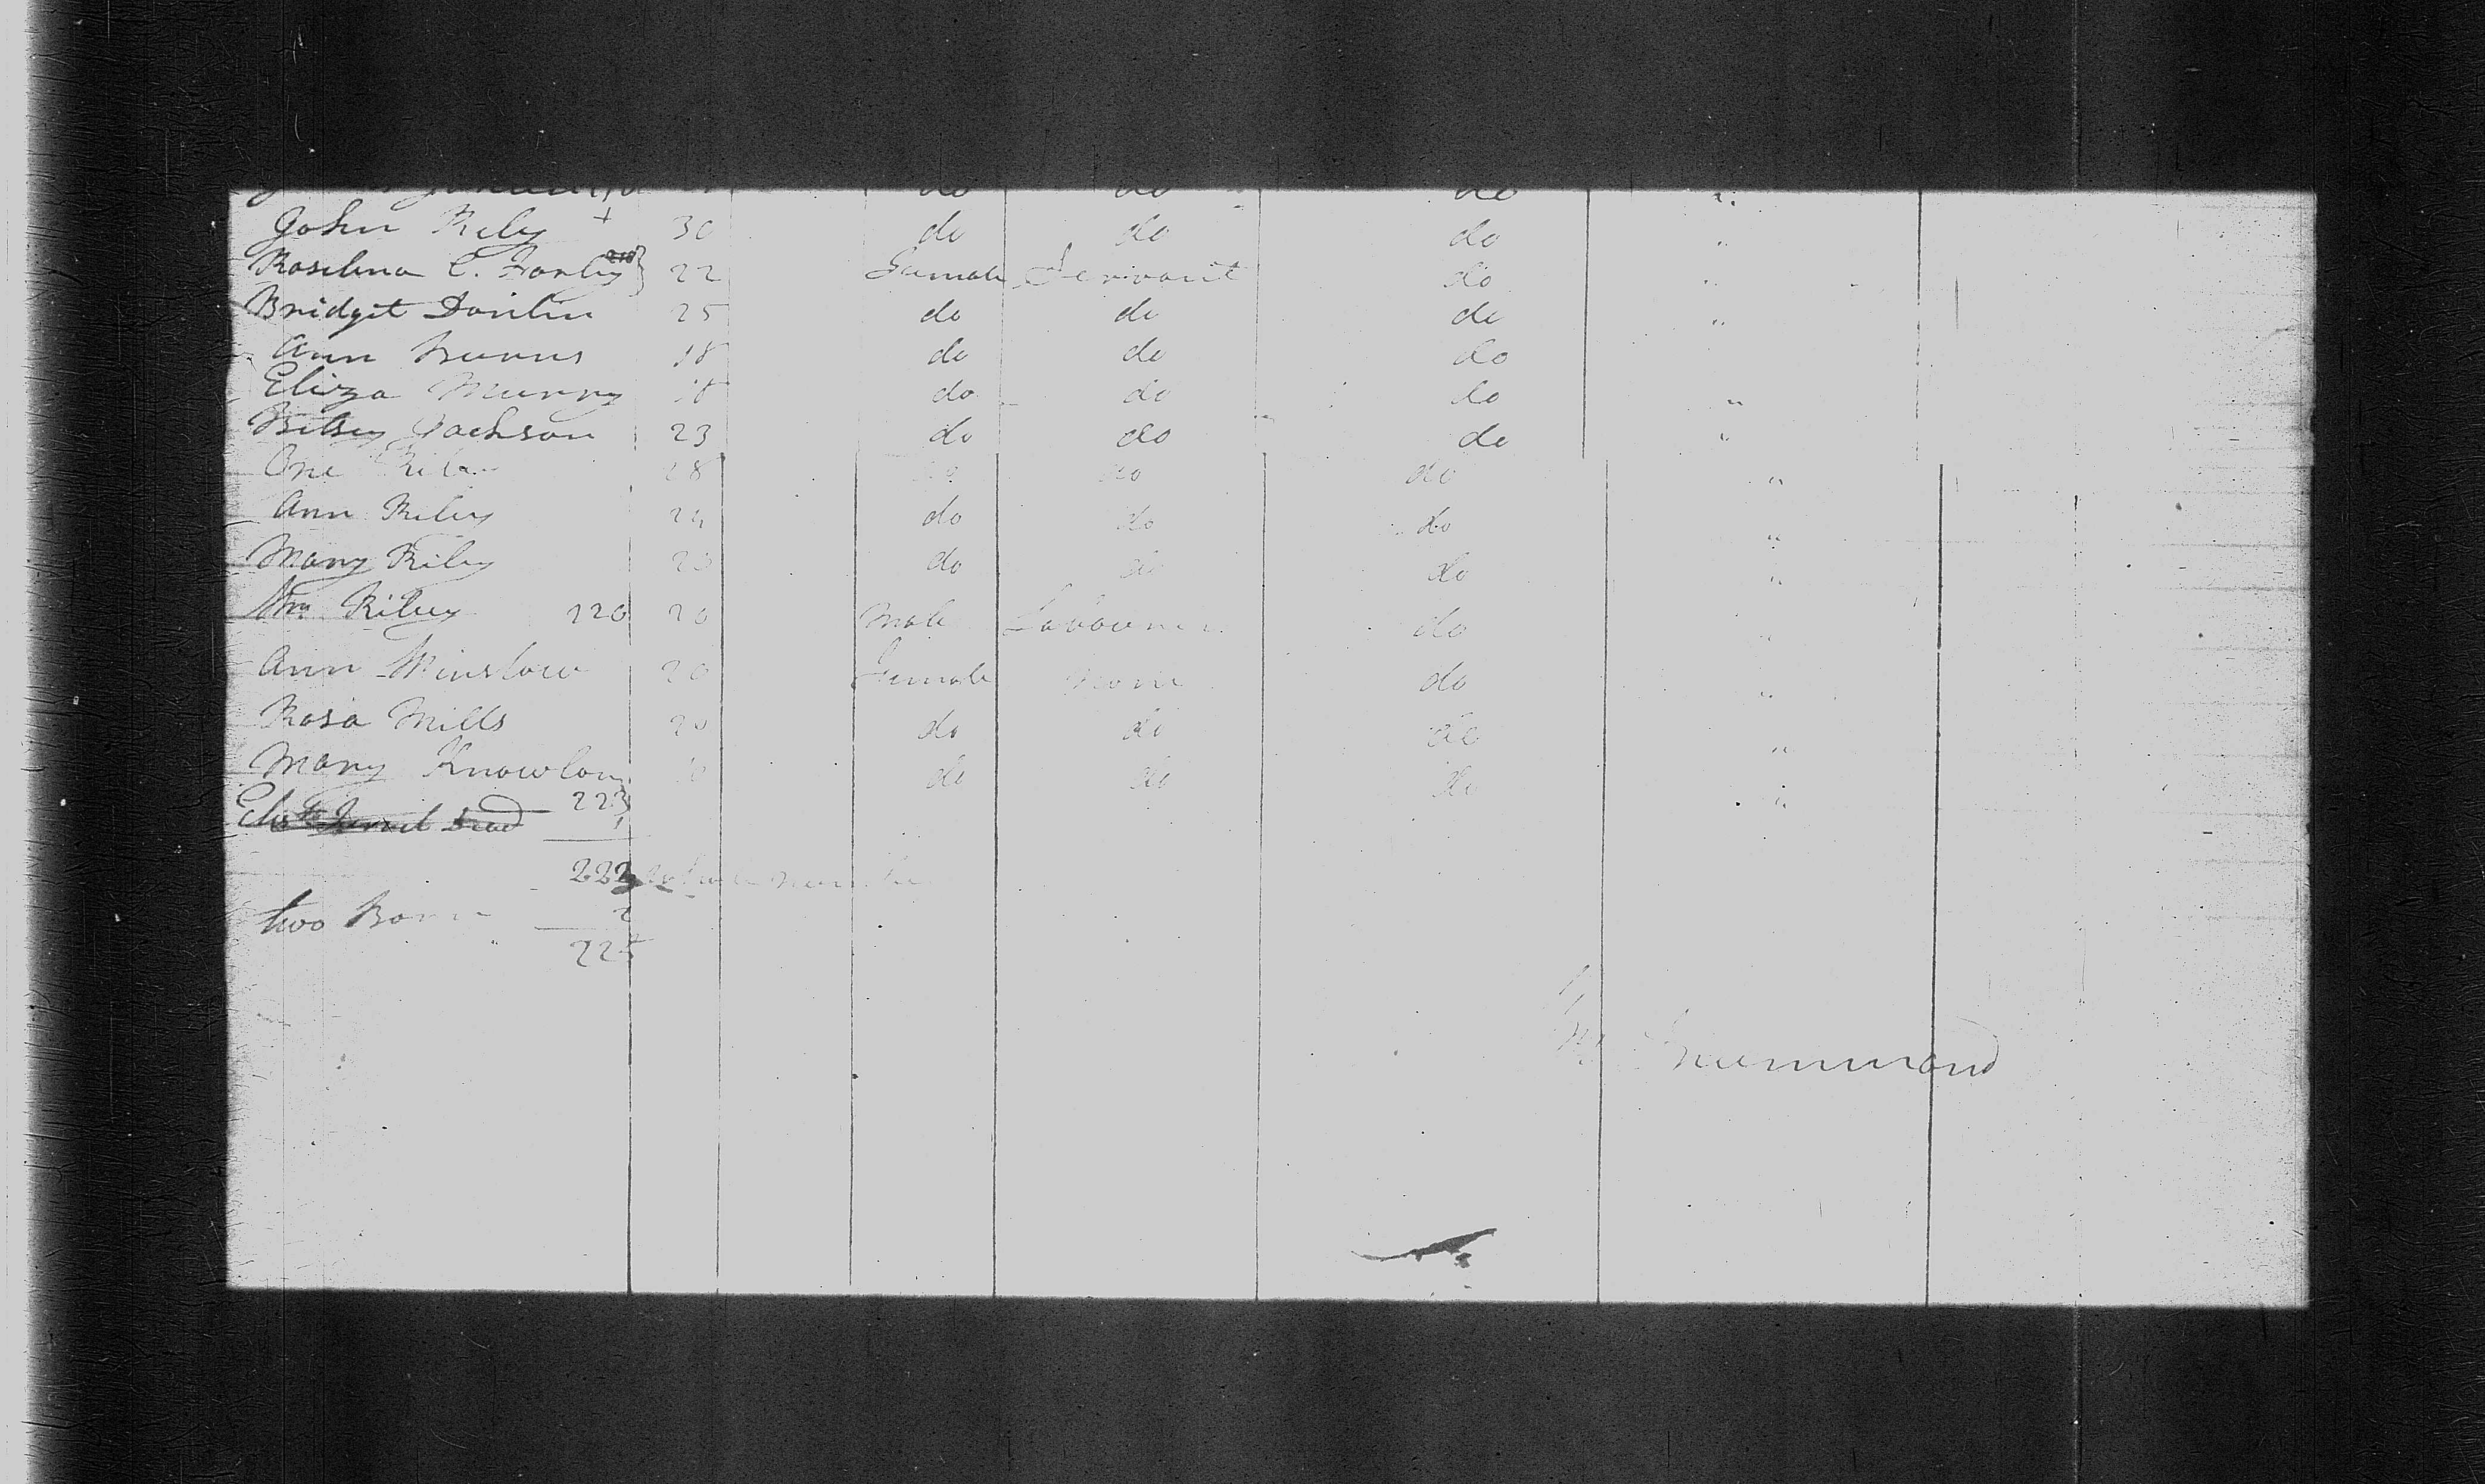 do do do "
John Riley + 30 do do do "
Roselina C. 22 Female Servant do "
Bridget 25 do do do "
Ann Burns 18 do do do
Eliza Murry 18 do do do "
Betsey Jackson 23 do do do "
One 28 do do do "
Ann Riley 24 do do do "
Mary Riley do do do "
Wm Riley 220 20 Male Labourer do "
Ann Winslow 20 Female None do "
Rosa Mills 20 do do do "
Mary Knowlon do do do "
223
Elizth dead 1
222 whole number
two Born 2
225
Drummond